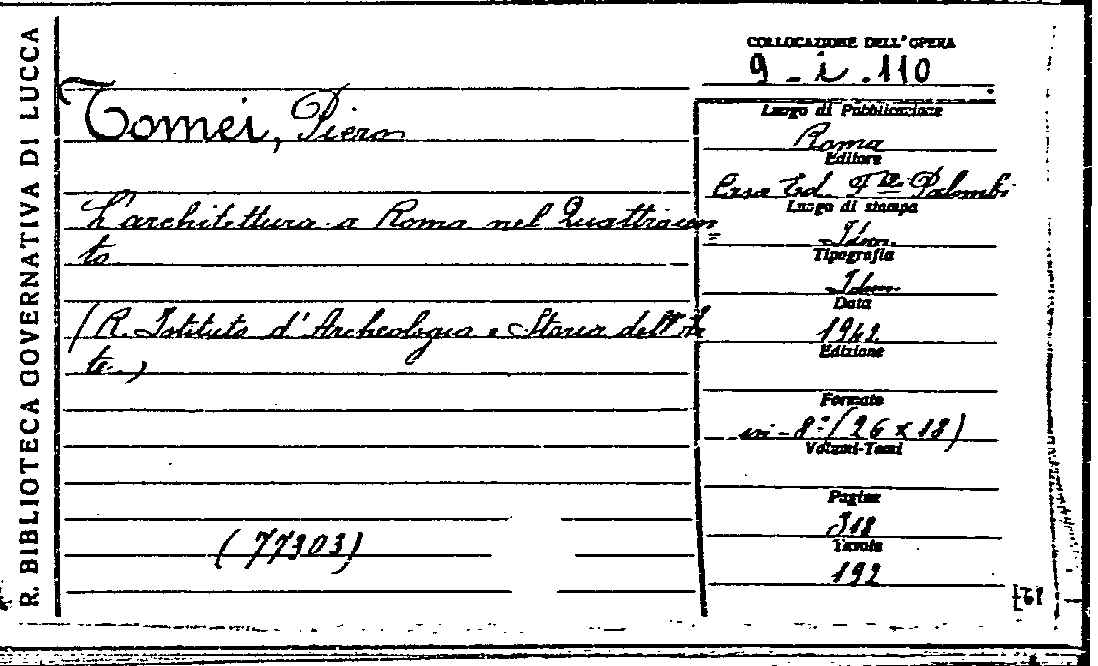 R. BIBLIOTECA GOVERNATIVA DI LUCCA
COLLOCAZIONE DELL'OPERA
9 - i . 110
Tomei, Piero
L'architettura a Roma nel Quattrocen=
to
(R. Istituto d'Archeologia e Storia dell'Ar
te.)
(77303)
Luogo di Pubblicazione
Roma
Editore
Casa Ed. F.lli Palombi
Luogo di stampa
Idem.
Tipografia
Idem
Data
1942.
Edizione
Formato
in-8° (26 x 18)
Volumi-Tomi
Pagine
318
Tavole
192